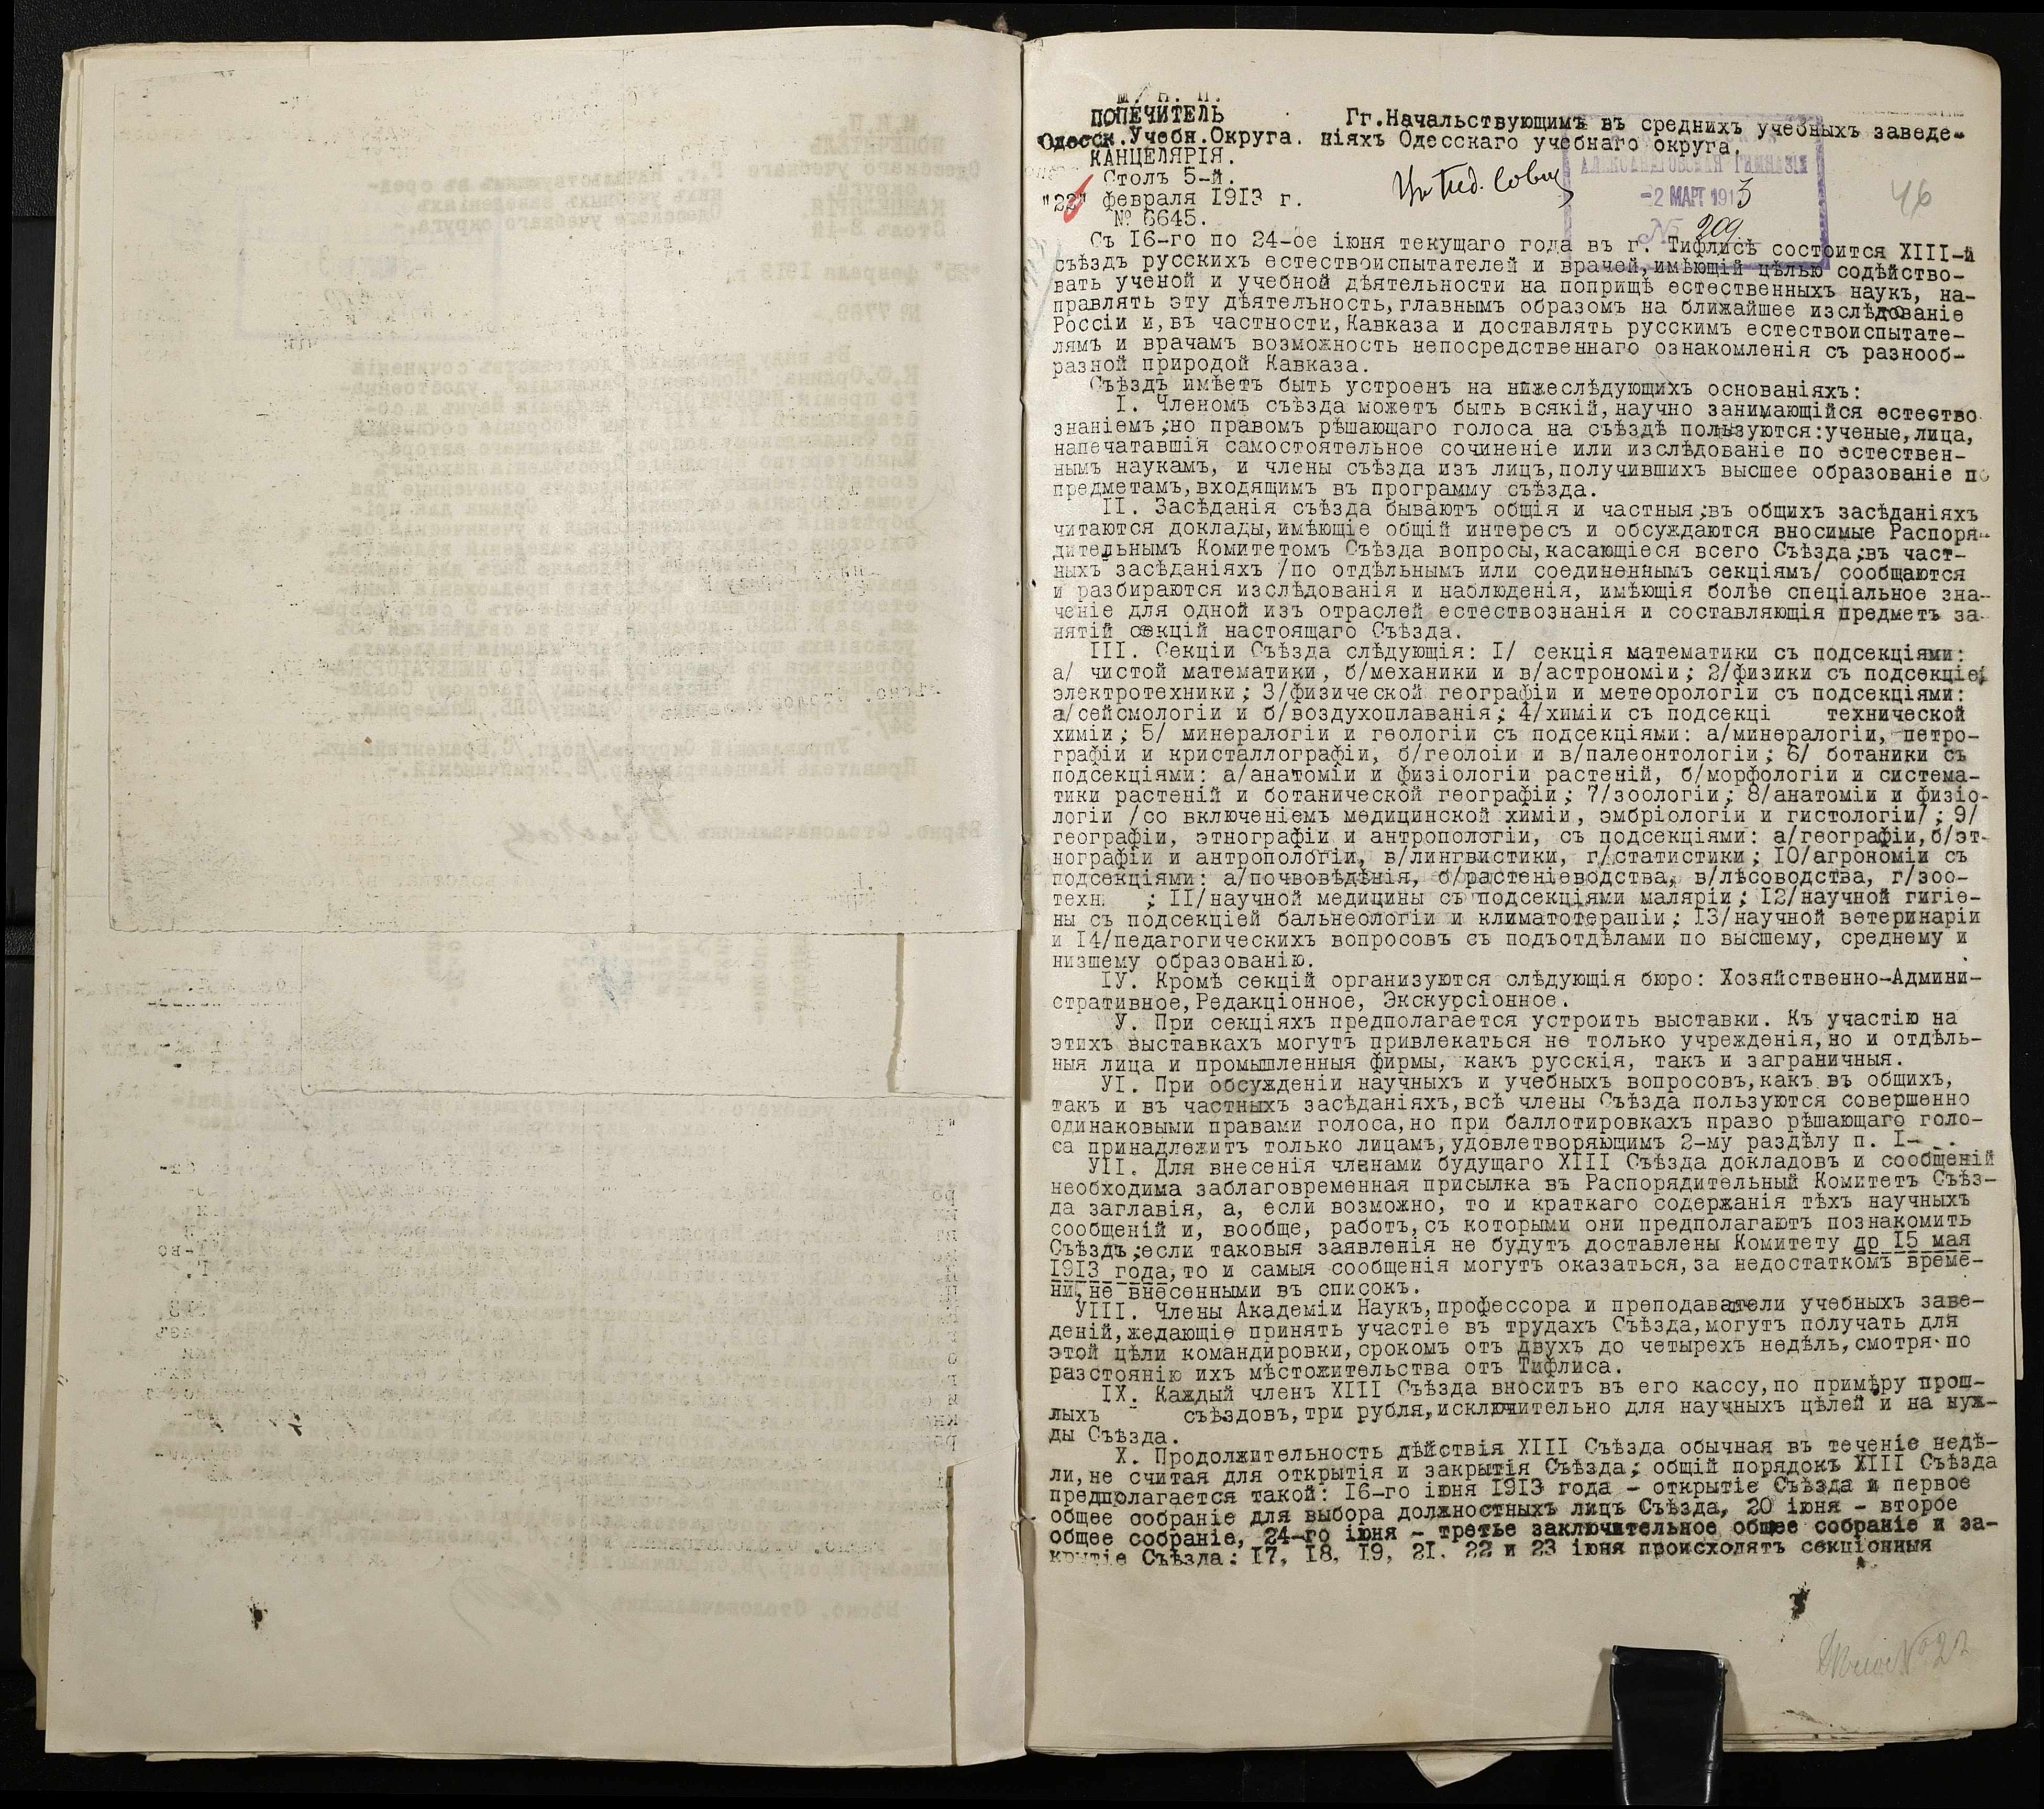 М. Н. П.
ПОПЕЧИТЕЛЬ
Одесск.Учебн.Округа.
КАНЦЕЛЯРІЯ.
Столъ 5-й.
"22" февраля 1913 г.
№ 6645.
Гг.Начальствующимъ въ среднихъ учебныхъ заведе-
ніяхъ Одесскаго учебнаго округа.
АЛЕКСАНДРОВСКАЯ ГИМНАЗІЯ
-2 МАРТ 1913
№ 209
46
Съ 16-го по 24-ое іюня текущаго года въ г. Тифлисѣ состоится XIII-й
съѣздъ русскихъ естествоиспытателей и врачей,имѣющій цѣлью содѣйство-
вать ученой и учебной дѣятельности на поприщѣ естественныхъ наукъ, на-
правлять эту дѣятельность,главнымъ образомъ на ближайшее изслѣдованіе
Россіи и,въ частности,Кавказа и доставлять русскимъ естествоиспытате-
лямъ и врачамъ возможность непосредственнаго ознакомленія съ разнооб-
разной природой Кавказа.
Съѣздъ имѣетъ быть устроенъ на нижеслѣдующихъ основаніяхъ:
I. Членомъ съѣзда можетъ быть всякій,научно занимающійся естество
знаніемъ;но правомъ рѣшающаго голоса на съѣздѣ пользуются:ученые,лица,
напечатавшія самостоятельное сочиненіе или изслѣдованіе по естествен-
нымъ наукамъ, и члены съѣзда изъ лицъ,получившихъ высшее образованіе по
предметамъ,входящимъ въ программу съѣзда.
II. Засѣданія съѣзда бываютъ общія и частныя;въ общихъ засѣданіяхъ
читаются доклады,имѣющіе общій интересъ и обсуждаются вносимые Распоря-
дительнымъ Комитетомъ Съѣзда вопросы,касающіеся всего Съѣзда;въ част-
ныхъ засѣданіяхъ /по отдѣльнымъ или соединеннымъ секціямъ/ сообщаются
и разбираются изслѣдованія и наблюденія, имѣющія болѣе спеціальное зна-
ченіе для одной изъ отраслей естествознанія и составляющія предметъ за-
нятій секцій настоящаго Съѣзда.
III. Секціи Съѣзда слѣдующія: I/ секція математики съ подсекціями:
а/ чистой математики, б/механики и в/астрономіи; 2/физики съ подсекціей
электротехники; 3/физической географіи и метеорологіи съ подсекціями:
а/сейсмологіи и б/воздухоплаванія; 4/химіи съ подсекці технической
химіи; 5/ минералогіи и геологіи съ подсекціями: а/минералогіи, петро-
графіи и кристаллографіи, б/геолоіи и в/палеонтологіи; 6/ ботаники съ
подсекціями: а/анатоміи и физіологіи растеній, б/морфологіи и система-
тики растеній и ботанической географіи; 7/зоологіи; 8/анатоміи и физіо-
логіи /со включеніемъ медицинской химіи, эмбріологіи и гистологіи/; 9/
географіи, этнографіи и антропологіи, съ подсекціями: а/географіи,б/эт-
нографіи и антропологіи, в/лингвистики, г/статистики; IO/агрономіи съ
подсекціями: а/почвовѣдѣнія, б/растеніеводства, в/лѣсоводства, г/зоо-
техн ; II/научной медицины съ подсекціями маляріи; I2/научной гигіе-
ны съ подсекціей бальнеологіи и климатотерапіи; I3/научной ветеринаріи
и I4/педагогическихъ вопросовъ съ подъотдѣлами по высшему, среднему и
низшему образованію.
IУ. Кромѣ секцій организуются слѣдующія бюро: Хозяйственно-Админи-
стративное,Редакціонное, Экскурсіонное.
У. При секціяхъ предполагается устроить выставки. Къ участію на
этихъ выставкахъ могутъ привлекаться не только учрежденія,но и отдѣль-
ныя лица и промышленныя фирмы, какъ русскія, такъ и заграничныя.
УI. При обсужденіи научныхъ и учебныхъ вопросовъ,какъ въ общихъ,
такъ и въ частныхъ засѣданіяхъ,всѣ члены Съѣзда пользуются совершенно
одинаковыми правами голоса,но при баллотировкахъ право рѣшающаго голо-
са принадлежитъ только лицамъ,удовлетворяющимъ 2-му раздѣлу п. I-
УII. Для внесенія членами будущаго XIII Съѣзда докладовъ и сообщеній
необходима заблаговременная присылка въ Распорядительный Комитетъ Съѣз-
да заглавія, а, если возможно, то и краткаго содержанія тѣхъ научныхъ
сообщеній и, вообще, работъ,съ которыми они предполагаютъ познакомить
Съѣздъ;если таковыя заявленія не будутъ доставлены Комитету до I5 мая
I9I3 года,то и самыя сообщенія могутъ оказаться,за недостаткомъ време-
ни,не внесенными въ списокъ.
УIII. Члены Академіи Наукъ,профессора и преподаватели учебныхъ заве-
деній,желающіе принять участіе въ трудахъ Съѣзда,могутъ получать для
этой цѣли командировки,срокомъ отъ двухъ до четырехъ недѣль,смотря по
разстоянію ихъ мѣстожительства отъ Тифлиса.
IX. Каждый членъ XIII Съѣзда вноситъ въ его кассу,по примѣру прош-
лыхъ съѣздовъ,три рубля,исключительно для научныхъ цѣлей и на нуж-
ды Съѣзда.
X. Продолжительность дѣйствія XIII Съѣзда обычная въ теченіе недѣ-
ли,не считая для открытія и закрытія Съѣзда; общій порядокъ XIII Съѣзда
предполагается такой: I6-го іюня I9I3 года - открытіе Съѣзда и первое
общее собраніе для выбора должностныхъ лицъ Съѣзда, 20 іюня - второе
общее собраніе, 24-го іюня - третье заключительное общее собраніе и за-
крытіе Съѣзда: I7, I8, I9, 2I, 22 и 23 іюня происходятъ секціонныя